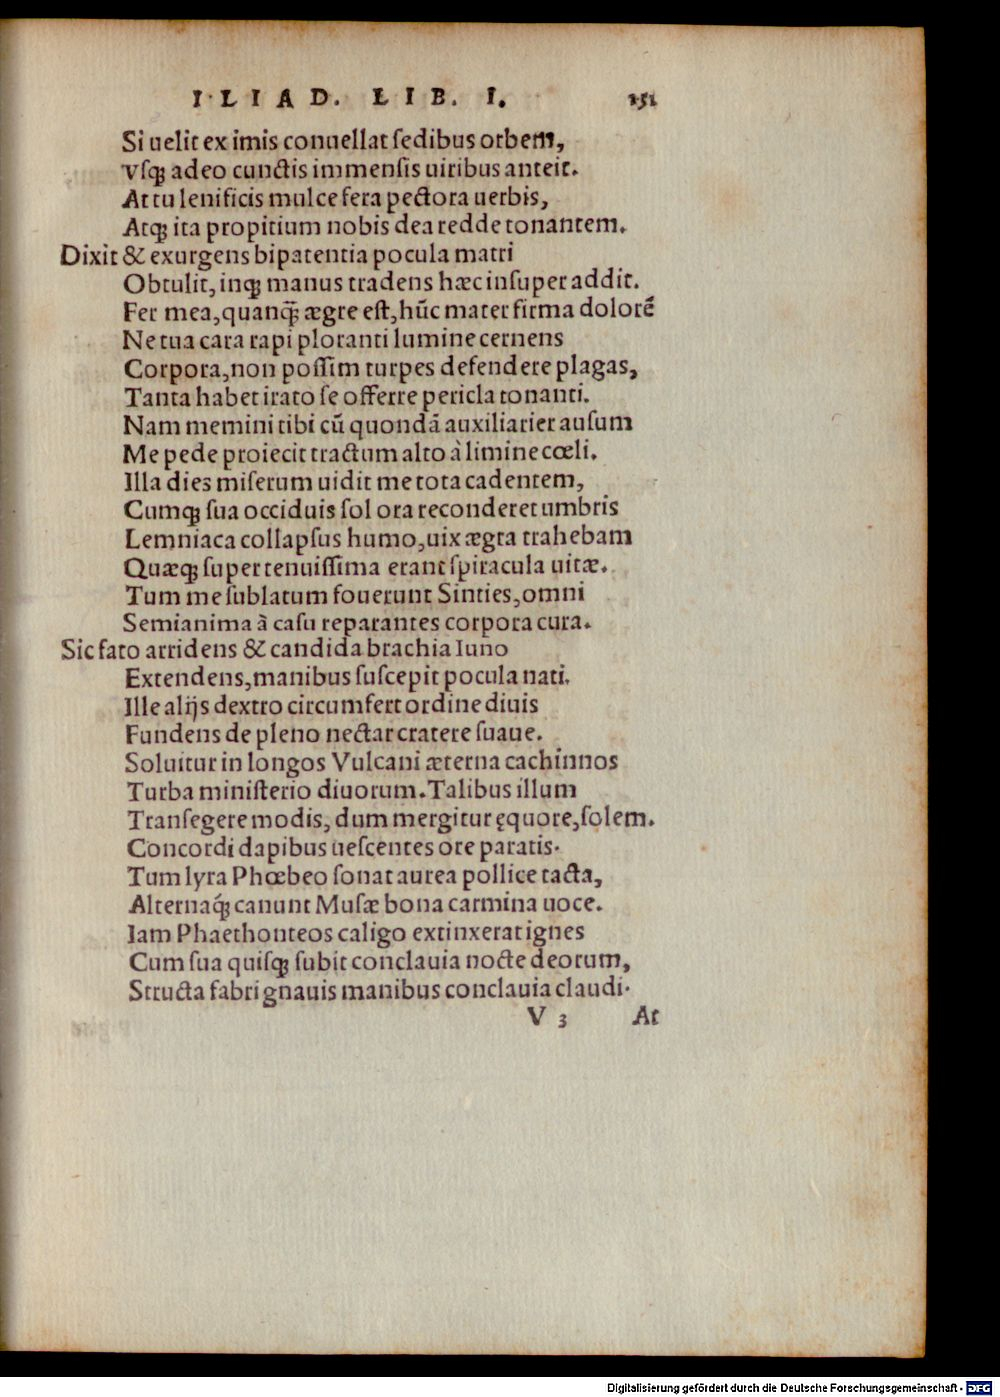 ILIAD. LIB. I. 151
Si uelit ex imis conuellat ſedibus orbem,
vſq̃ adeo cunctis immenſis uiribus anteit.
At tu lenificis mulce fera pectora uerbis,
Atq̃ ita propitium nobis dea redde tonantem.
Dixit & exurgens bipatentia pocula matri
Obtulit, inq̃ manus tradens hæc inſuper addit.
Fer mea, quanq̃ ægre eſt, hũc mater firma dolorẽ
Ne tua cara rapi ploranti lumine cernens
Corpora, non poſſim turpes defendere plagas,
Tanta habet irato ſe offerre pericla tonanti.
Nam memini tibi cũ quondã auxiliarier auſum
Me pede proiecit tractum alto à limine cœli.
Illa dies miſerum uidit me tota cadentem,
Cumq̃ ſua occiduis ſol ora reconderet umbris
Lemniaca collapſus humo, uix ægra trahebam
Quæq̃ ſuper tenuiſſima erant ſpiracula uitæ.
Tum me ſublatum fouerunt Sinties, omni
Semianima à caſu reparantes corpora cura.
Sic fato arridens & candida brachia Iuno
Extendens, manibus ſuſcepit pocula nati.
Ille alijs dextro circumfert ordine diuis
Fundens de pleno nectar cratere ſuaue.
Soluitur in longos Vulcani æterna cachinnos
Turba miniſterio diuorum. Talibus illum
Tranſegere modis, dum mergitur ęquore, ſolem.
Concordi dapibus ueſcentes ore paratis.
Tum lyra Phœbeo ſonat aurea pollice tacta,
Alternaq̃ canunt Muſæ bona carmina uoce.
Iam Phaethonteos caligo extinxerat ignes
Cum ſua quiſq̃ ſubit conclauia nocte deorum,
Structa fabri gnauis manibus conclauia claudi.
V 3 At
Digitalisierung gefördert durch die Deutsche Forschungsgemeinschaft - DFG